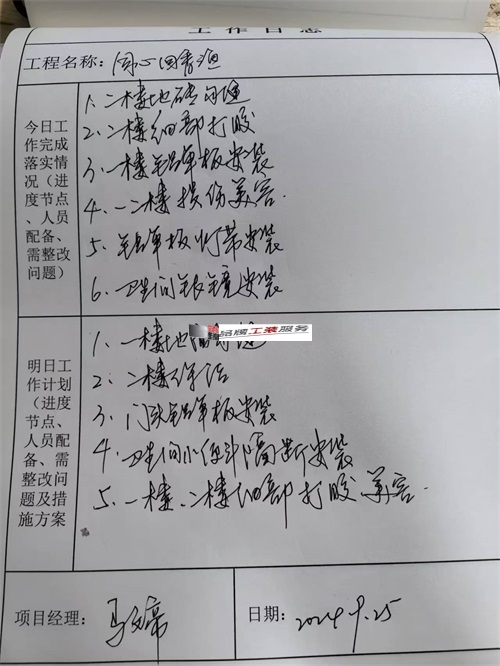 工作日志
工程名称：同心回香渔
今日工作完成落实情况（进度节点、人员配备、需整改问题）
1、二楼地砖勾缝
2、二楼细部打胶
3、一楼铝单板安装
4、一二楼损伤美容
5、铝单板灯带安装
6、卫生间银镜安装
品牌工装服务
明日工作计划（进度节点、人员配备、需整改问题及措施方案
1、一楼地
2、二楼保洁
3、门头铝单板安装
4、卫生间小便斗隔断安装
5、一楼、二楼细部打胶美容
项目经理：
日期：2024.9.25